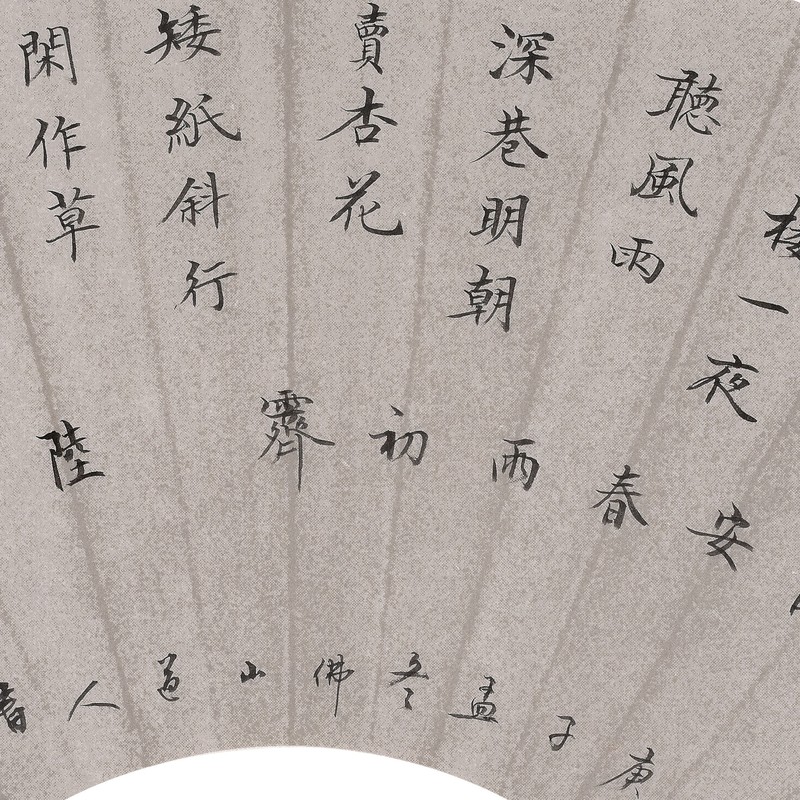 樓一夜
聽風雨
深巷明朝
賣杏花
矮紙斜行
閑作草
安春雨初霽
陸
庚子孟冬佛山道人書